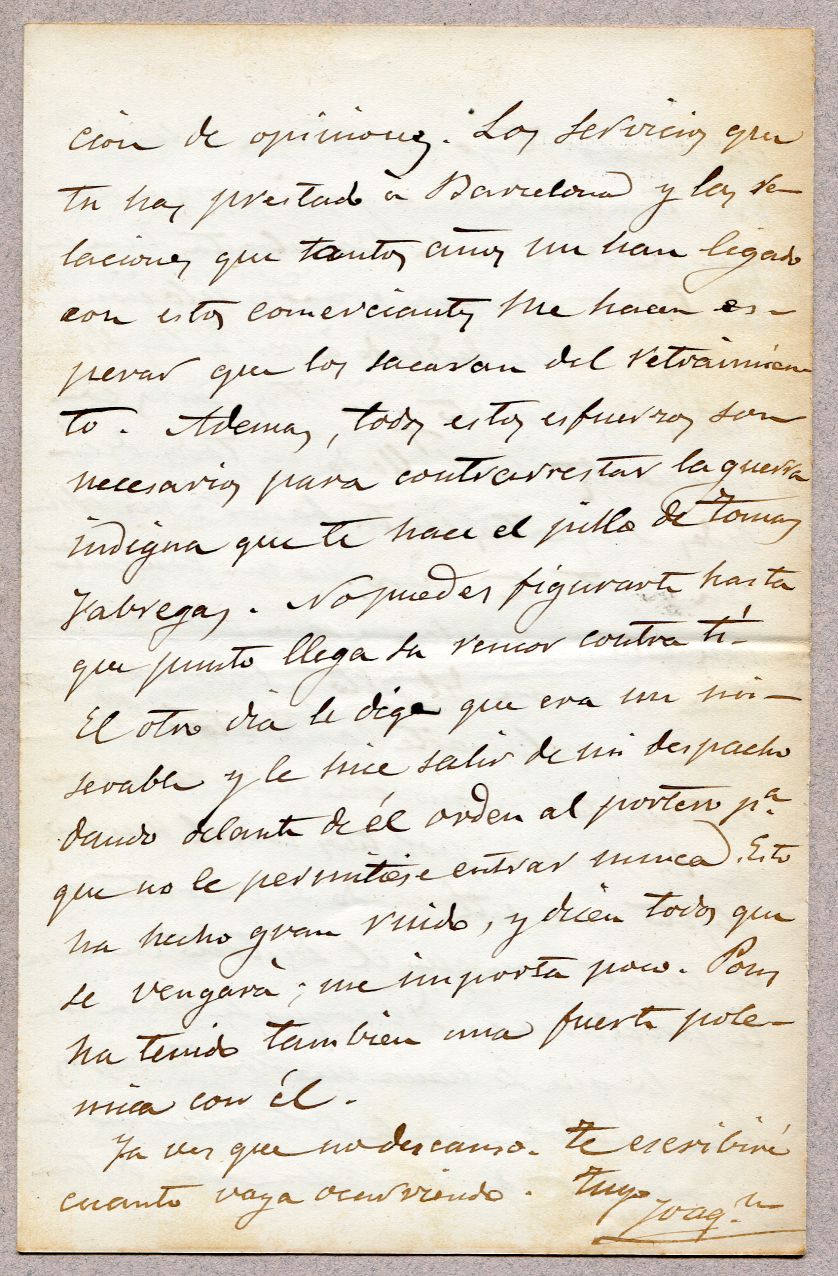 cion de opiniones. Los servicios que
tu has prestado à Barcelona y las re-
laciones que tantos años me han ligado
con estos comerciantes me hacen es-
perar que los sacaran del retraimien
to. Ademas, todos estos esfuerzos son
necesarios para contrarrestar la guerra
indigna que te hace el pillo de Tomas
Fabregas. No puedes figurarte hasta
que punto llega su rencor contra tí.
El otro dia le dige que era un mi-
serable y le hice salir de mi despacho
dando delante de él orden al portero pª
que no le permitiese entrar nunca. Esto
ha hecho gran ruido, y dicen todos que
se vengarà; me importa poco. Pons
ha tenido tambien una fuerte pole-
mica con él.
Ya ves que no descanso. Te escribiré
cuanto vaya ocurriendo. Tuyo
Joaqⁿ